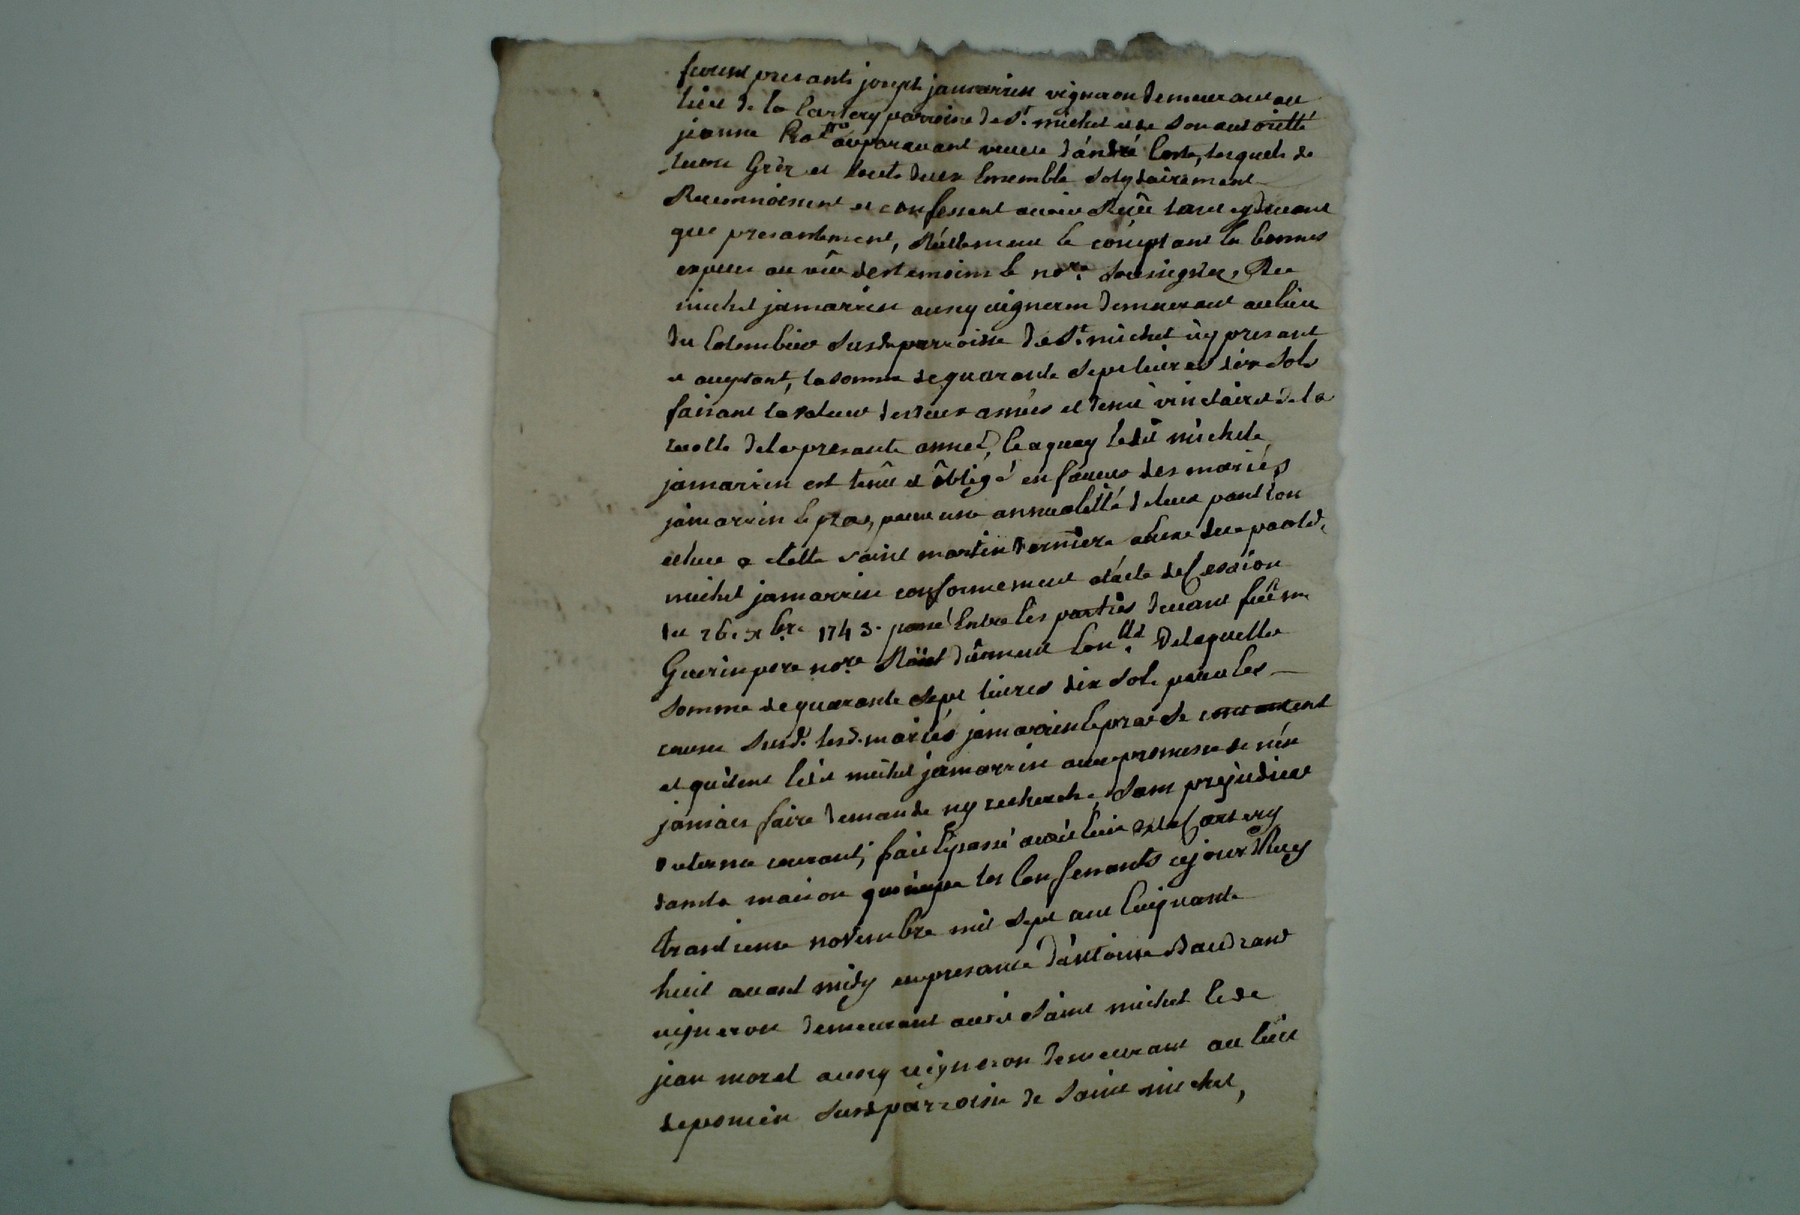 furent presants joseph jamarrin vigneron demeurant au
lieu de la Cartery parroisse de St. michel et de son autoritté
jeanne auparavant veuve d'andré Coste, lesquels de
leurs Grés et touts deux Ensemble Solydairement
Reconnoissent et confessent avoir Reçû tant cydevant
que presantement, Réellement le comptant En bonnes
especes au vûe des temoins le nore. soussignés, De
michel jamarrin aussy vigneron demeurant au lieu
du Colombier susd. parroisse de St. michel icy presant
et aceptant, la somme de quarante sept livres dix sols
faisant la valeur de deux annés et demi de la
recolte de la presante anneé, le dit michel
jamarrin est tenû et obligé en faveur des mariés
jamarrin pour une annualitté de leur pantion
echue a cette saint martin derniere
michel jamarrin conformement a l'acte de Cession
du 26. xbre. 1743. passé Entre les parties devant feû me
Guerin pere nore. Röial dûement Conllé. De laquelle
somme de quarante sept livres dix sols pour les
causes susd. lesd. mariés jamarrin se contentent
et quitent led. michel jamarrin avec promesse de n'en
jamais faire demande ny recherche, Sans prejudice
du terme courant; fait et passé audit lieu de la Cartery
dans la maison les Confessants cejourd'huy
trantieme novembre mil sept cent Cinquante
huit avant midy en presance d'antoine Baudrand
vigneron demeurant audit Saint michel Et de
jean morel aussy vigneron demeurant au lieu
de susd. parroisse de Saint michel,